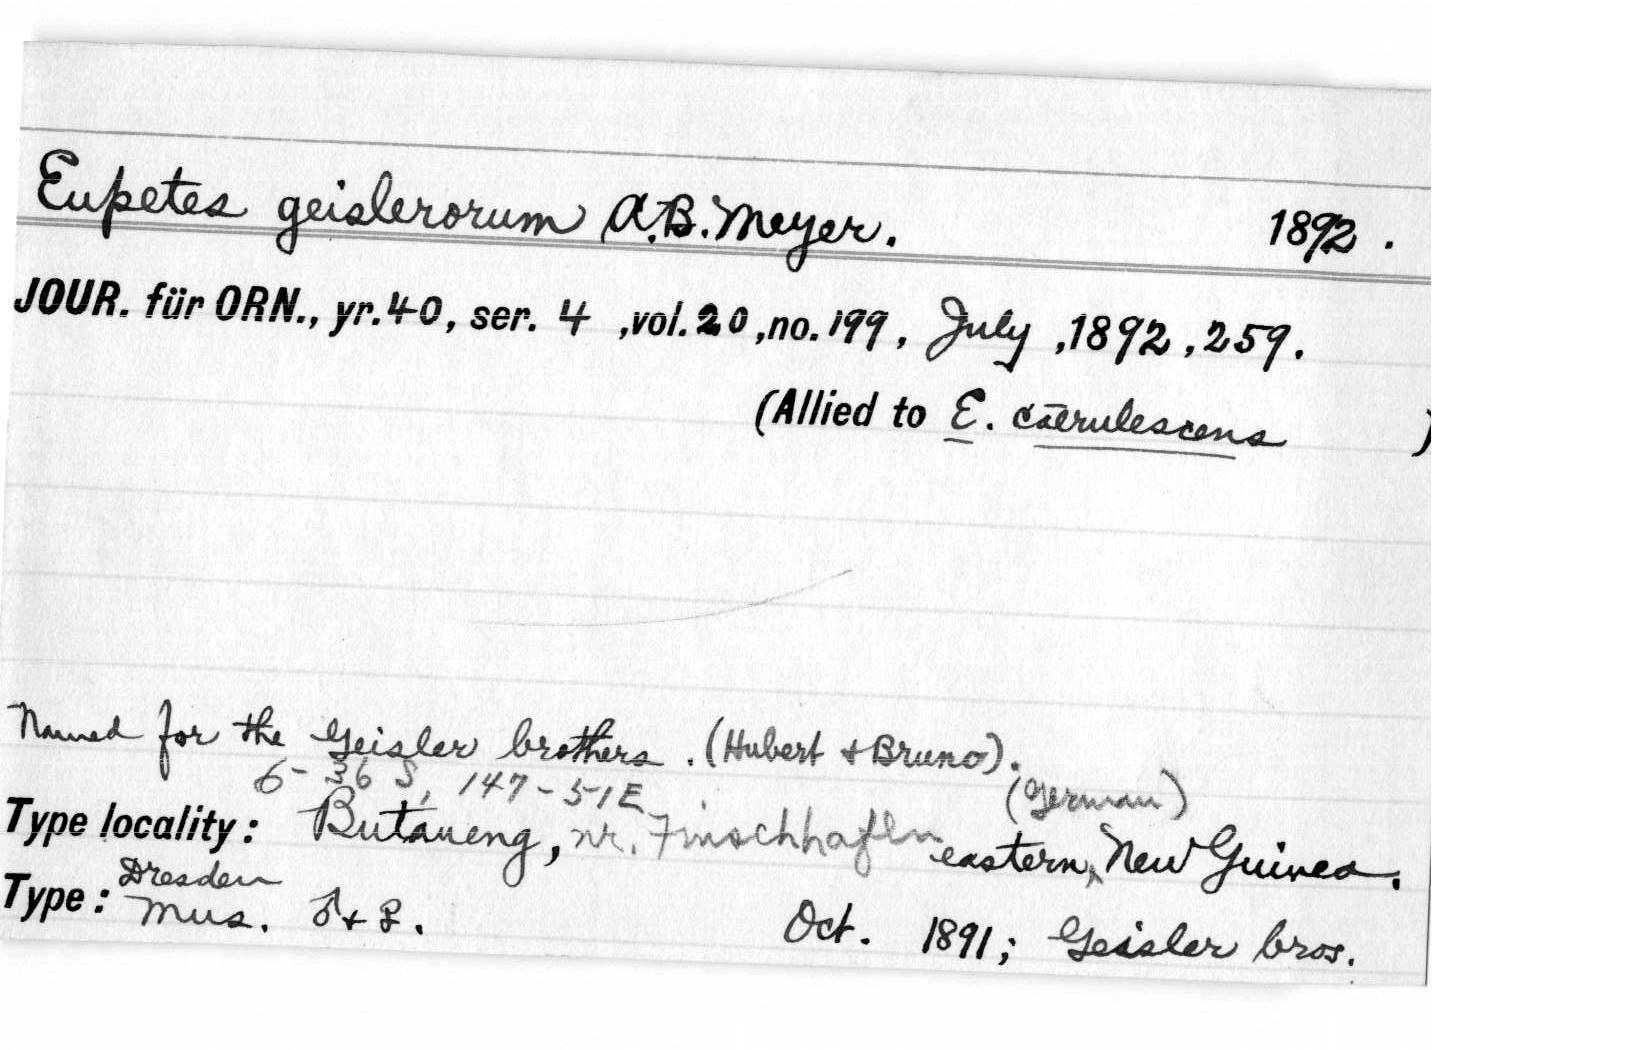 Eupetes geislerorum A.B. Meyer. 1892.
JOUR. für ORN., yr. 40, ser. 4, vol. 20, no. 199, July, 1892, 259.
(Allied to E. caerulescens )
Named for the Geisler brothers. (Hubert + Bruno).
6-36 S, 147-51 E
(German)
Type locality: Butaueng, nr. Finschhafen eastern New Guinea.
Dresden
Type: Mus. ♂ + ♀. Oct. 1891; Geisler bros.